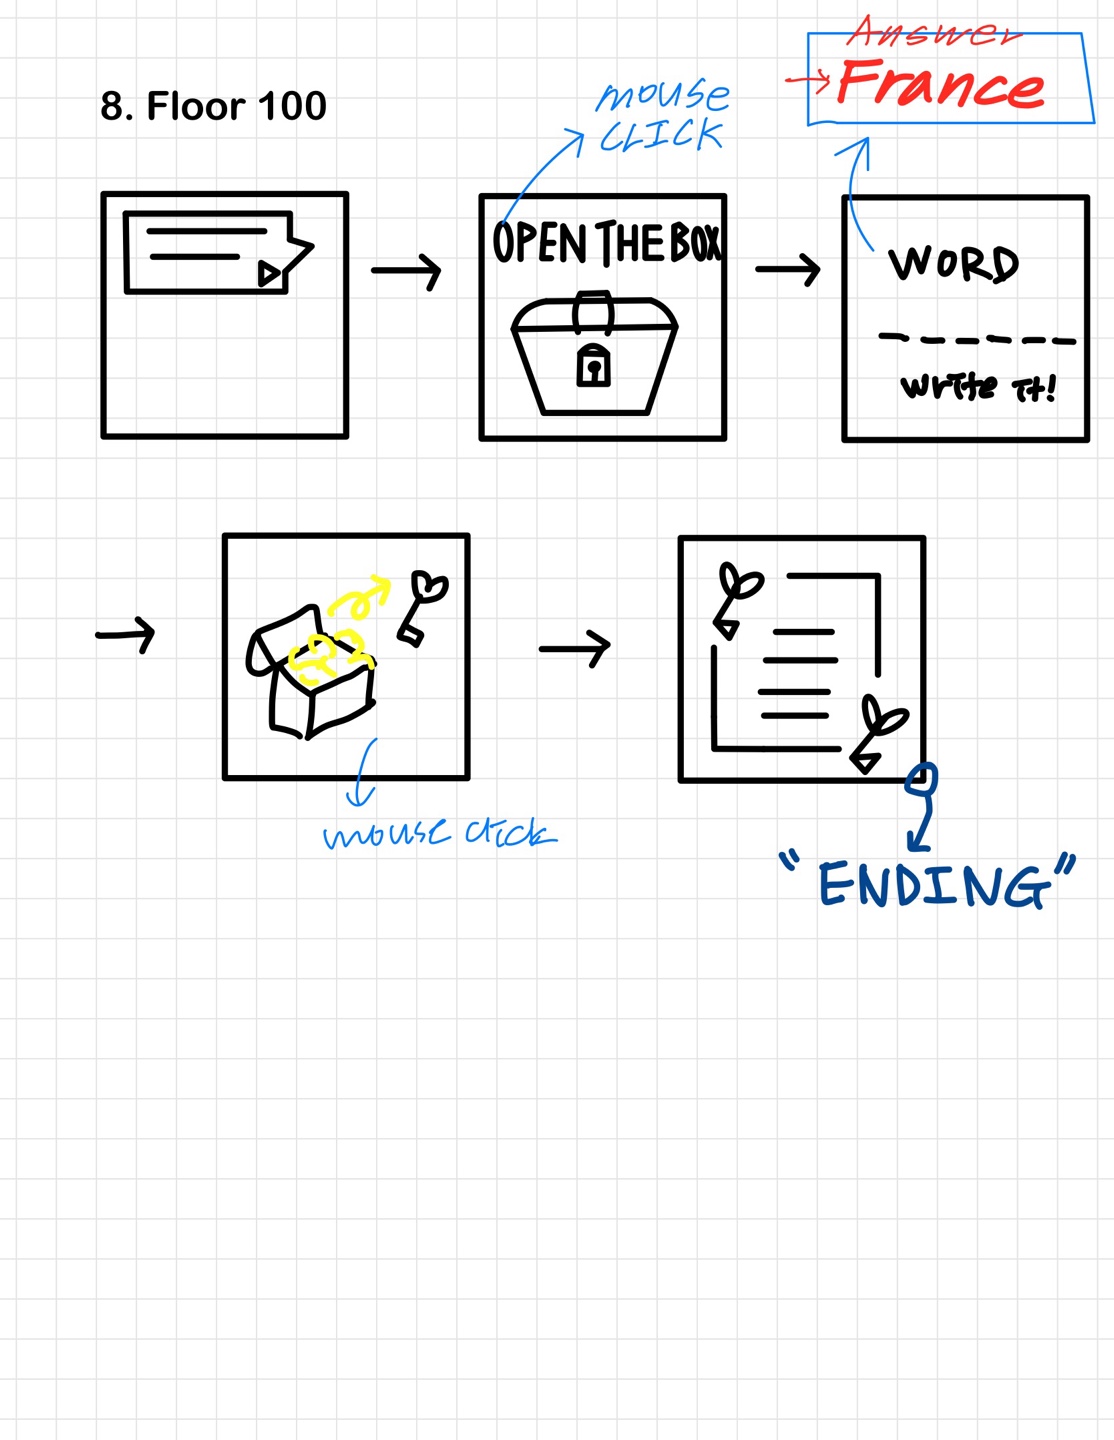 Answer
8. Floor 100
mouse
CLICK
France
OPEN THE BOX
WORD
write it!
mouse click
"ENDING"